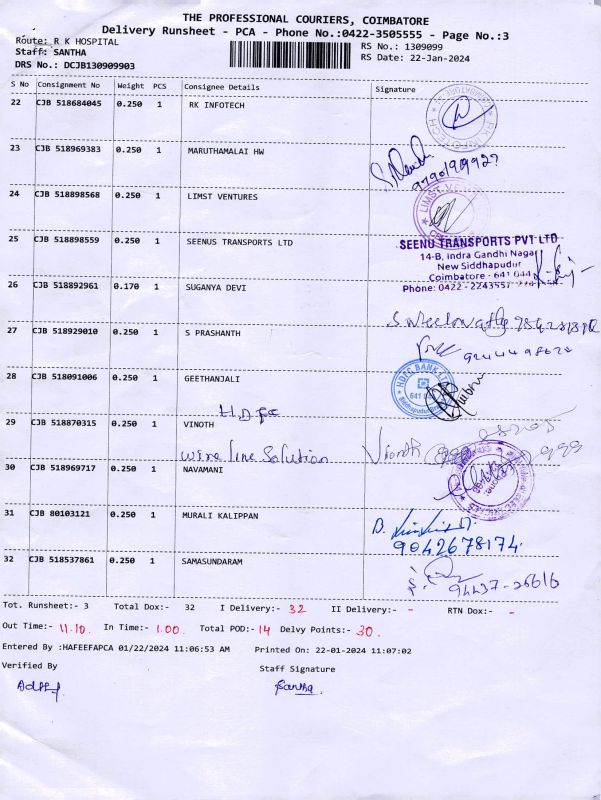 THE PROFESSIONAL COURIERS, COIMBATORE
Delivery Runsheet - PCA - Phone No.:0422-3505555 - Page No.:3
Route: R K HOSPITAL
Staff: SANTHA
DRS No.: DCJB130909903
RS No.: 1309099
RS Date: 22-Jan-2024
S No Consignment No Weight PCS Consignee Details Signature
22 CJB 518684045 0.250 1 RK INFOTECH
23 CJB 518969383 0.250 1 MARUTHAMALAI HW
24 CJB 518898568 0.250 1 LIMST VENTURES
25 CJB 518898559 0.250 1 SEENUS TRANSPORTS LTD
SEENU TRANSPORTS PVT LTD
14-B, indra Gandhi Nagar
New Siddhapudur
Coimbatore - 641 044
Phone: 0422 - 2243557
26 CJB 518892961 0.170 1 SUGANYA DEVI
27 CJB 518929010 0.250 1 S PRASHANTH
28 CJB 518091006 0.250 1 GEETHANJALI
HDFC BANK LTD
HDFC
29 CJB 518870315 0.250 1 VINOTH
wire line Solution Vinoth
30 CJB 518969717 0.250 1 NAVAMANI
31 CJB 80103121 0.250 1 MURALI KALIPPAN
9042678174
32 CJB 518537861 0.250 1 SAMASUNDARAM
94437-26616
Tot. Runsheet:- 3 Total Dox:- 32 I Delivery:- 32 II Delivery:- - RTN Dox:- -
Out Time:- 11.10. In Time:- 1.00. Total POD:- 14 Delvy Points:- 30.
Entered By :HAFEEFAPCA 01/22/2024 11:06:53 AM Printed On: 22-01-2024 11:07:02
Verified By Staff Signature
Santha